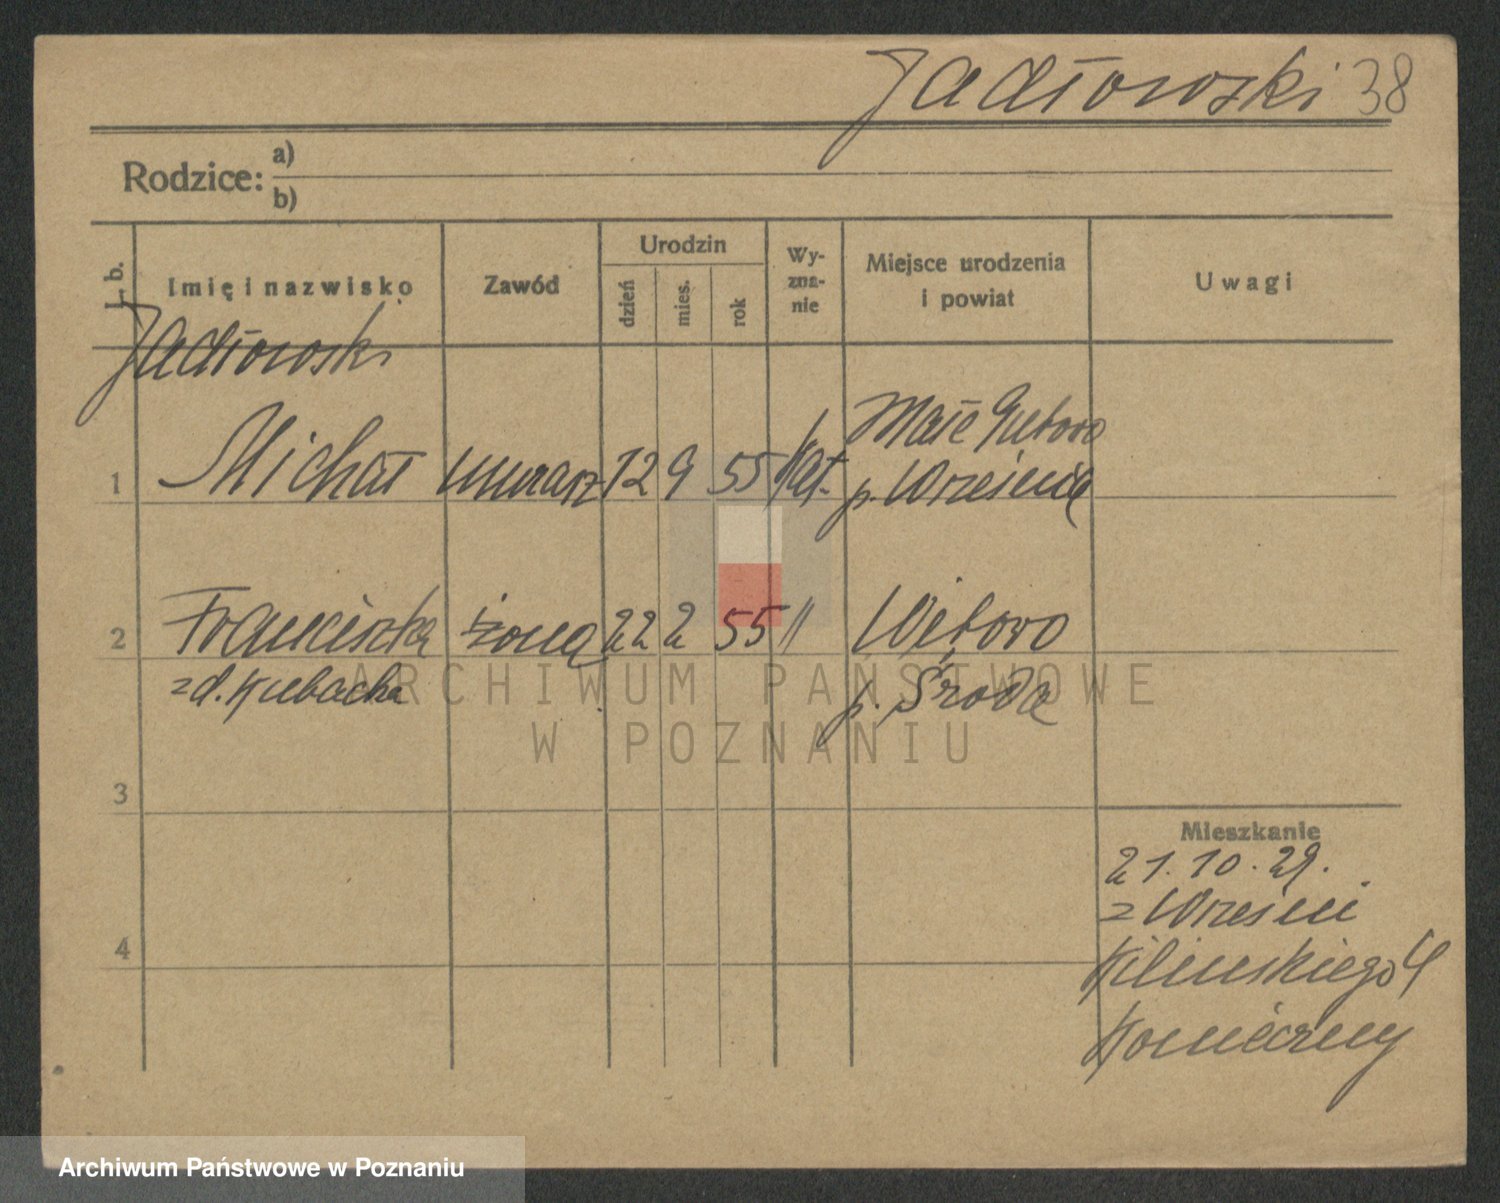 Jadłowski 38
Rodzice: a)
b)
L b. Imię i nazwisko Zawód Urodzin dzień mies. rok Wy-zna-nie Miejsce urodzenia i powiat Uwagi
Jadłowski
1 Michał murarz 12 9 55 kat. Małe
p. Września
2 Franciszka żona 22 2 55 " Witowo
z d. Kubacka p. Środa
3
Mieszkanie
21.10.29.
z Wrześni
4 Kilińskiego 4
Konieczny
ARCHIWUM PAŃSTWOWE
W POZNANIU
Archiwum Państwowe w Poznaniu